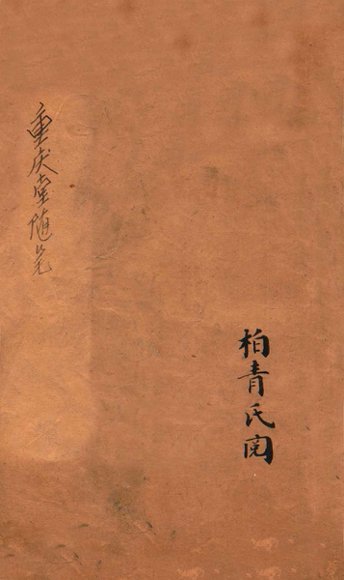 重庆堂随笔
柏青氏阅